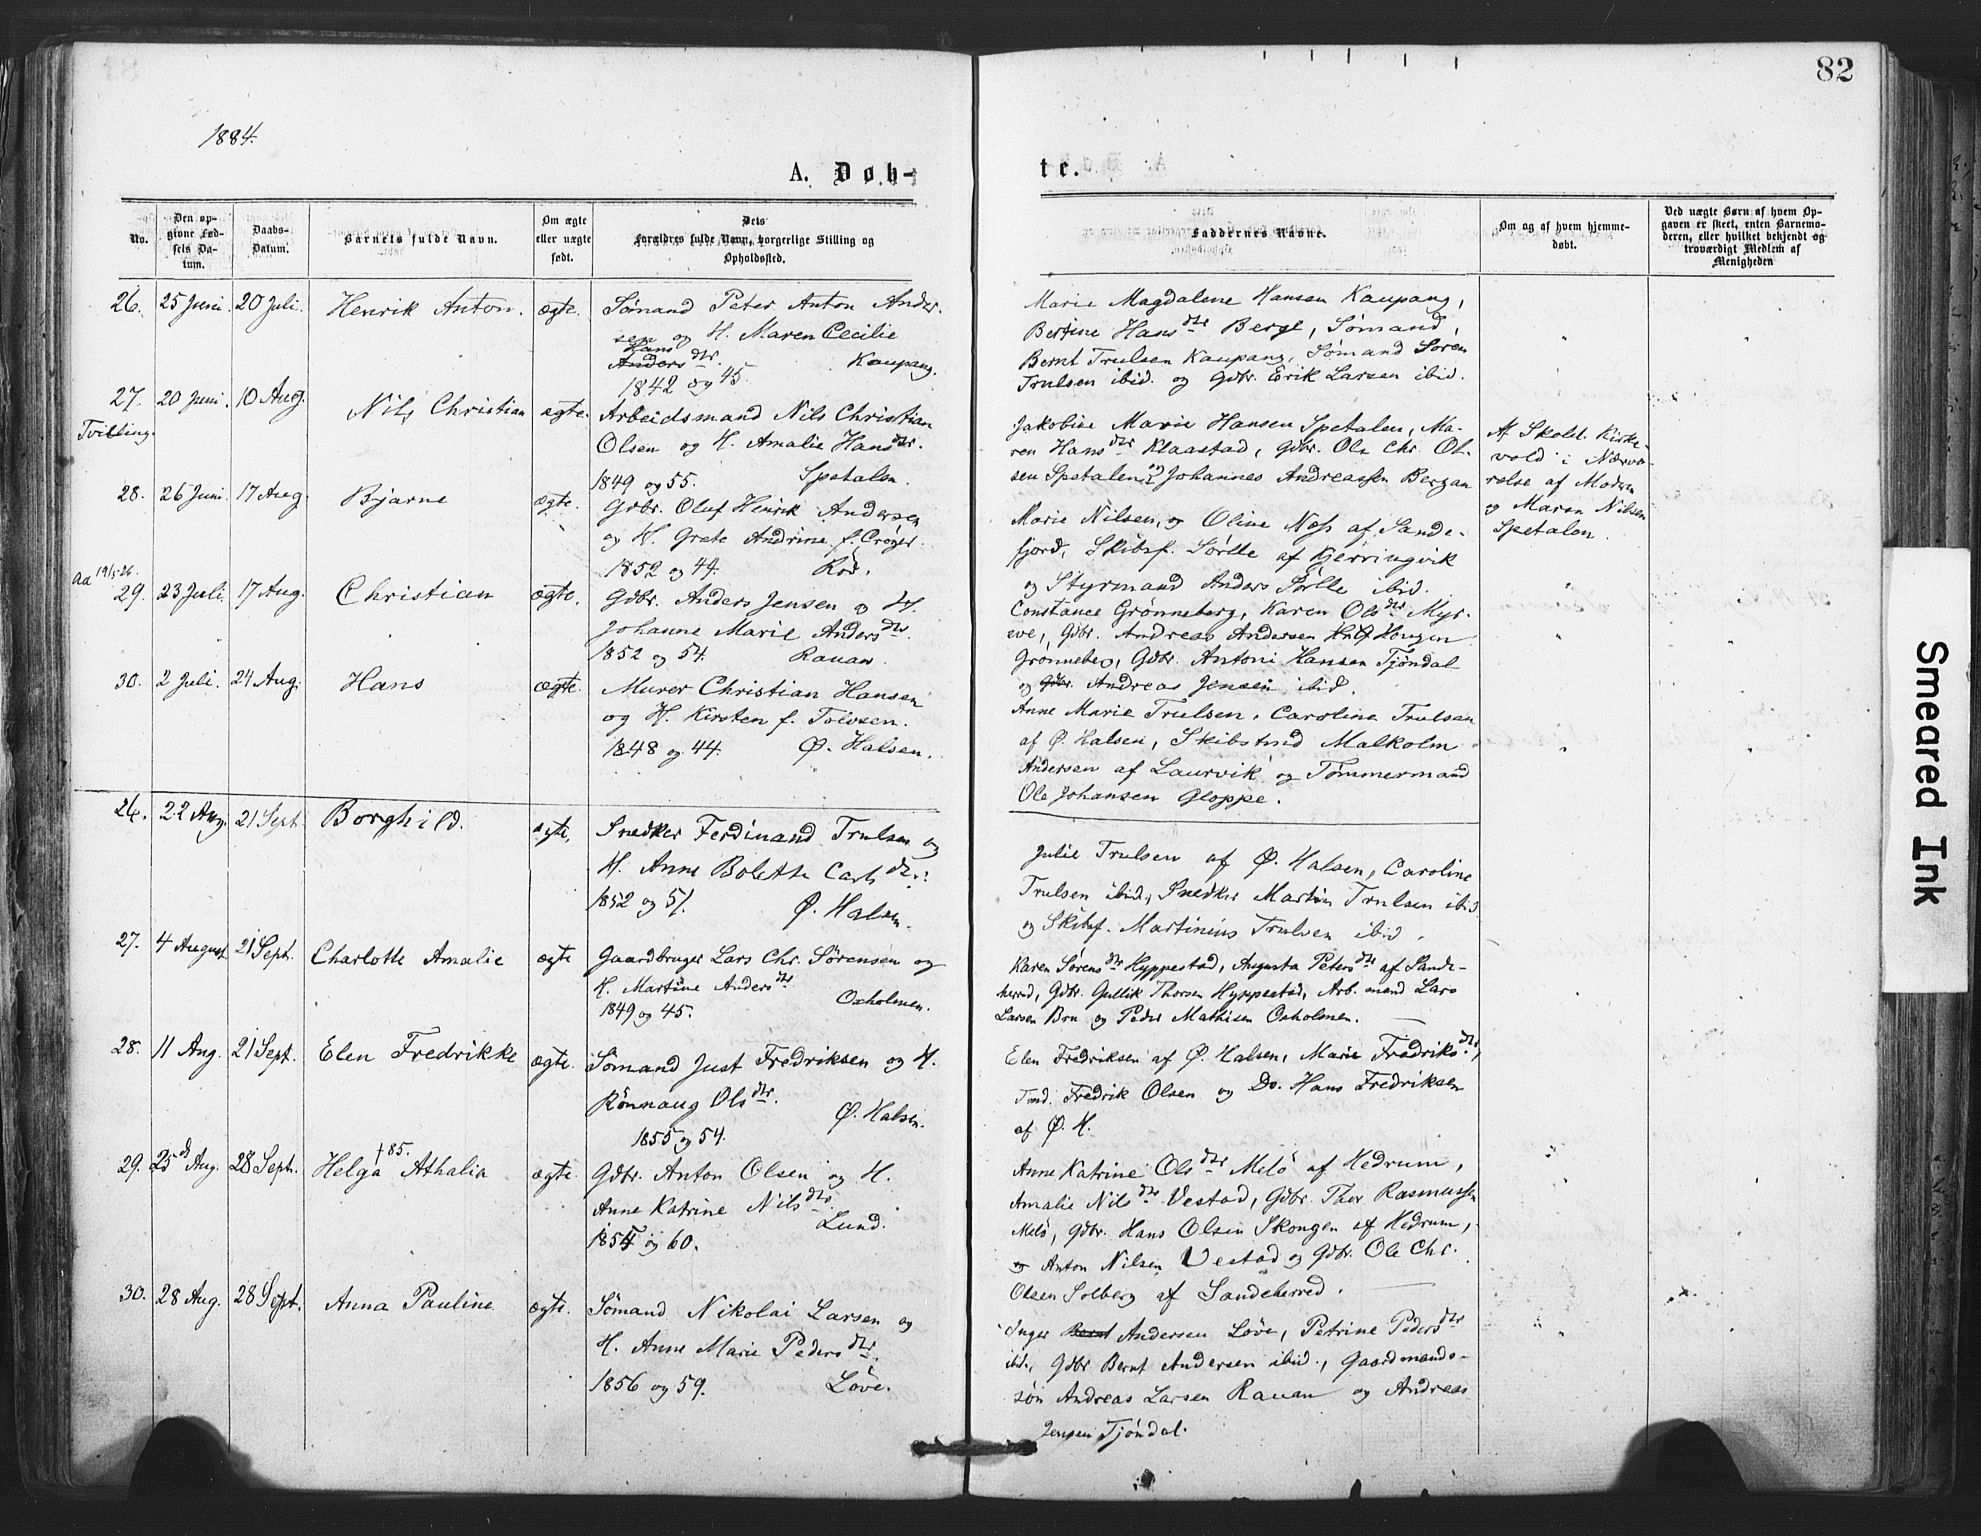 82
1884.
A. Døb-
te.
No.
Den op-
givne Fød-
sels Da-
tum.
Daabs-
Datum.
Barnets fulde Navn.
Om ægte
eller uægte
født.
Dets
Forældres fulde Navn, borgerlige Stilling og
Opholdssted.
Faddernes Navne.
Om og af hvem hjemme-
døbt.
Ved uægte Børn af hvem Op-
gaven er skeet, enten Barnemo-
deren, eller hvilket bekjendt og
troværdigt Medlem af
Menigheden
26. 25 Juni. 20 Juli. Henrik Anton. ægte. Sømand Peter Anton Ander-
sen og H. Maren Cecilie
Hans
Anders dtr. Kaupang.
1842 og 45.
Marie Magdalene Hansen Kaupang,
Bertine Hans dtr Berge, Sømand,
Bernt Trulsen Kaupang, Sømand Søren
Trulsen ibid. og Gdbr. Erik Larsen ibid.
27. 20 Juni. 10 Aug. Nils Christian ægte. Arbeidsmand Nils Christian
Tvilling.
Olsen og H. Amalie Hans dtr.
1849 og 55. Spetalen.
Jakobine Marie Hansen Spetalen, Ma-
ren Hans dtr Klaastad, Gdbr. Ole Chr. Ol-
sen Spetalen og Johannes Andreassen Bergan
Af Skolel. Kirke-
vold i Nærvæ-
relse af Modren
og Maren Nilsen
Spetalen.
28. 26 Juni. 17 Aug. Bjarne ægte. Gdbr. Oluf Henrik Andersen
og H. Grete Andrine f. Crøger.
1852 og 49. Röd.
Marie Nilsen, og Oline Næss af Sande-
fjord, Skibsf. Sørlle af Gjerringvik
og Styrmand Anders Sørlle ibid.
aa 19/5-26.
29. 23 Juli. 17 Aug. Christian ægte. Gdbr. Anders Jensen og H.
Johanne Marie Anders dtr.
1852 og 54. Rauan.
Constance Grønneberg, Karen Ols dtr Myr-
ene, Gdbr. Andreas Andersen Haugen
Grønneberg, Gdbr. Antoni Hansen Tjøndal
og Gdbr. Andreas Jensen ibid.
30. 2 Juli. 24 Aug. Hans ægte. Murer Christian Hansen
og H. Kirsten f. Toivsen.
1848 og 44. Ø. Halsen.
Anne Marie Trulsen, Caroline Trulsen
af Ø. Halsen, Skibstmd Malkolm
Andersen af Laurvik og Tømmermand
Ole Johansen Gloppe.
26. 22 Aug. 21 Sept. Borghild. ægte. Snedker Ferdinand Trulsen og
H. Anne Bolette Carls dtr.
1852 og 51. Ø. Halsen.
Julie Trulsen af Ø. Halsen, Caroline
Trulsen ibid., Snedker Martin Trulsen ibid
og Skibsf. Martinius Trulsen ibid.
27. 4 August. 21 Sept. Charlotte Amalie ægte Gaardbruger Lars Chr. Sørensen og
H. Martine Anders dtr
1849 og 45. Oxholmen.
Karen Sørens dtr Hyppestad, Augusta Peters dtr af Sande-
herred, Gdbr. Gullik Thorsen Hyppestad, Arb. mand Lars
Larsen Bru og Peder Mathisen Oxholmen.
28. 11 Aug. 21 Sept. Elen Fredrikke ægte. Sømand Just Fredriksen og H.
Rönnaug Ols dtr.
1855 og 54. Ø. Halsen.
Elen Fredriksen af Ø. Halsen, Marie Fredriks dtr,
Tmd. Fredrik Olsen og Do. Hans Fredriksen
af Ø. H.
† 85.
29. 25de Aug. 28 Sept. Helga Athalia ægte. Gdbr. Anton Olsen og H.
Anne Katrine Nils dtr.
1854 og 60. Lund.
Anne Katrine Ols dtr Melö af Hedrum,
Amalie Nils dtr Vestad, Gdbr. Thor Rasmussen
Melö, Gdbr. Hans Olsen Skongen af Hedrum,
og Anton Nilsen Vestad og Gdbr. Ole Chr.
Olsen Solberg af Sandeherred.
30. 28 Aug. 28 Sept. Anna Pauline ægte. Sömand Nikolai Larsen og
H. Anne Marie Peders dtr.
1856 og 59. Löve.
Inger Bernt Andersen Löve, Petrine Peders dtr
ibid., Gdbr Bernt Andersen ibid., Gaardmands-
søn Andreas Larsen Rauan og Andreas
Jensen Tjöndal.
Smeared Ink